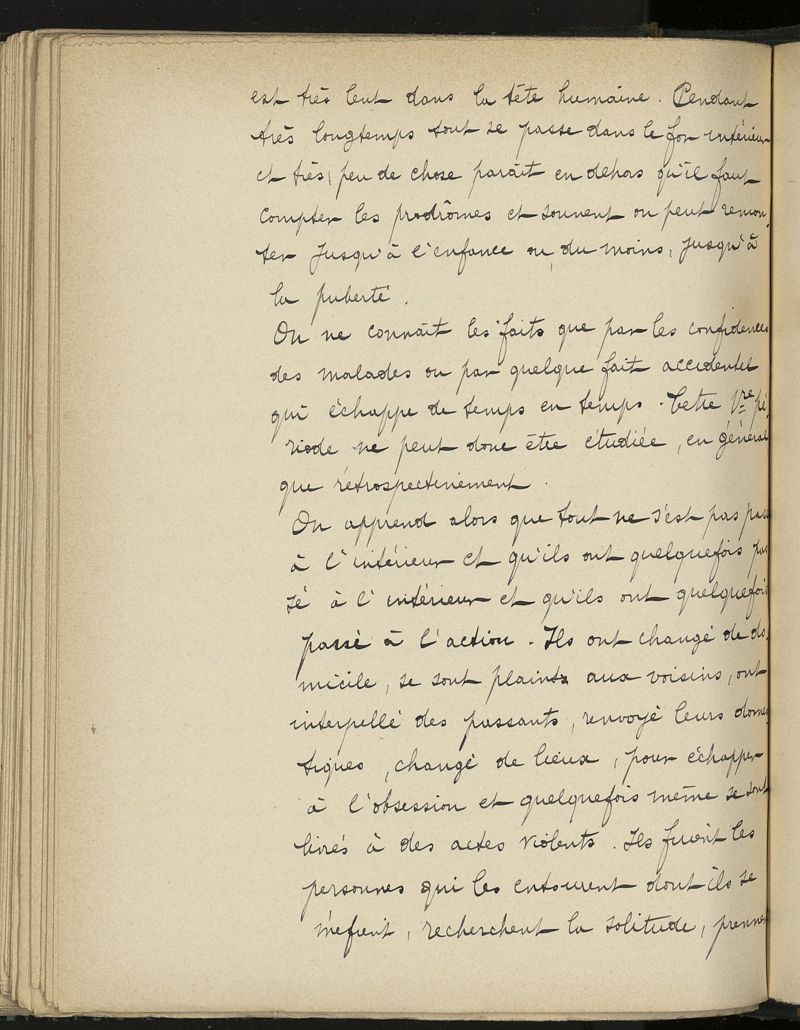 est très lent dans la tête humaine. Pendant
très longtemps tout se passe dans le for intérieur
et très, peu de chose paraît en dehors qu'il faut
compter les prodrômes et souvent on peut remon-
ter jusqu'à l'enfance ou, du moins, jusqu'à
la puberté.
On ne connaît les faits que par les confidences
des malades ou par quelque fait accidentel
qui échappe de temps en temps. Cette 1re pé-
riode ne peut donc être étudiée, en général
que rétrospectivement.
On apprend alors que tout ne s'est pas passé
à l'intérieur et qu'ils ont quelquefois pas
sé à l'intérieur et qu'ils ont quelquefois
passé à l'action. Ils ont changé de do-
micile, se sont plaints aux voisins, ont
interpellé des passants, renvoyé leurs domes
tiques, changé de lieux, pour échapper
à l'obsession et quelquefois même se sont
livrés à des actes violents. Ils fuient les
personnes qui les entourent dont ils se
méfient, recherchent la solitude, prennent